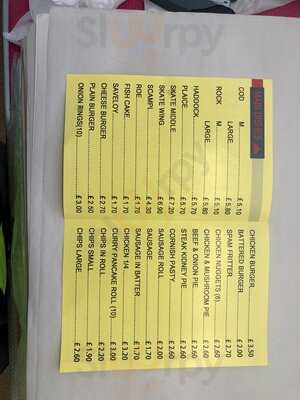 MAIN DISHES
COD M £5.10
LARGE £5.80
ROCK M £5.10
LARGE £5.80
HADDOCK £5.70
PLAICE £5.70
SKATE MIDDLE £7.20
SKATE WING £6.90
SCAMPI £4.30
ROE £1.70
FISH CAKE £1.70
SAVELOY £1.70
CHEESE BURGER £2.70
PLAIN BURGER £2.50
ONION RINGS(10) £3.00
CHICKEN BURGER £3.50
BATTERED BURGER £2.00
SPAM FRITTER £2.70
CHICKEN NUGGETS (8) £2.60
CHICKEN & MUSHROOM PIE £2.60
BEEF & ONION PIE £2.60
STEAK KIDNEY PIE £2.60
CORNISH PASTY £2.60
SAUSAGE ROLL £2.00
SAUSAGE £1.70
SAUSAGE IN BATTER £1.70
CHICKEN 1/4 £3.20
CURRY PANCAKE ROLL (10) £3.00
CHIPS IN ROLL £2.20
CHIPS SMALL £1.90
CHIPS LARGE £2.60